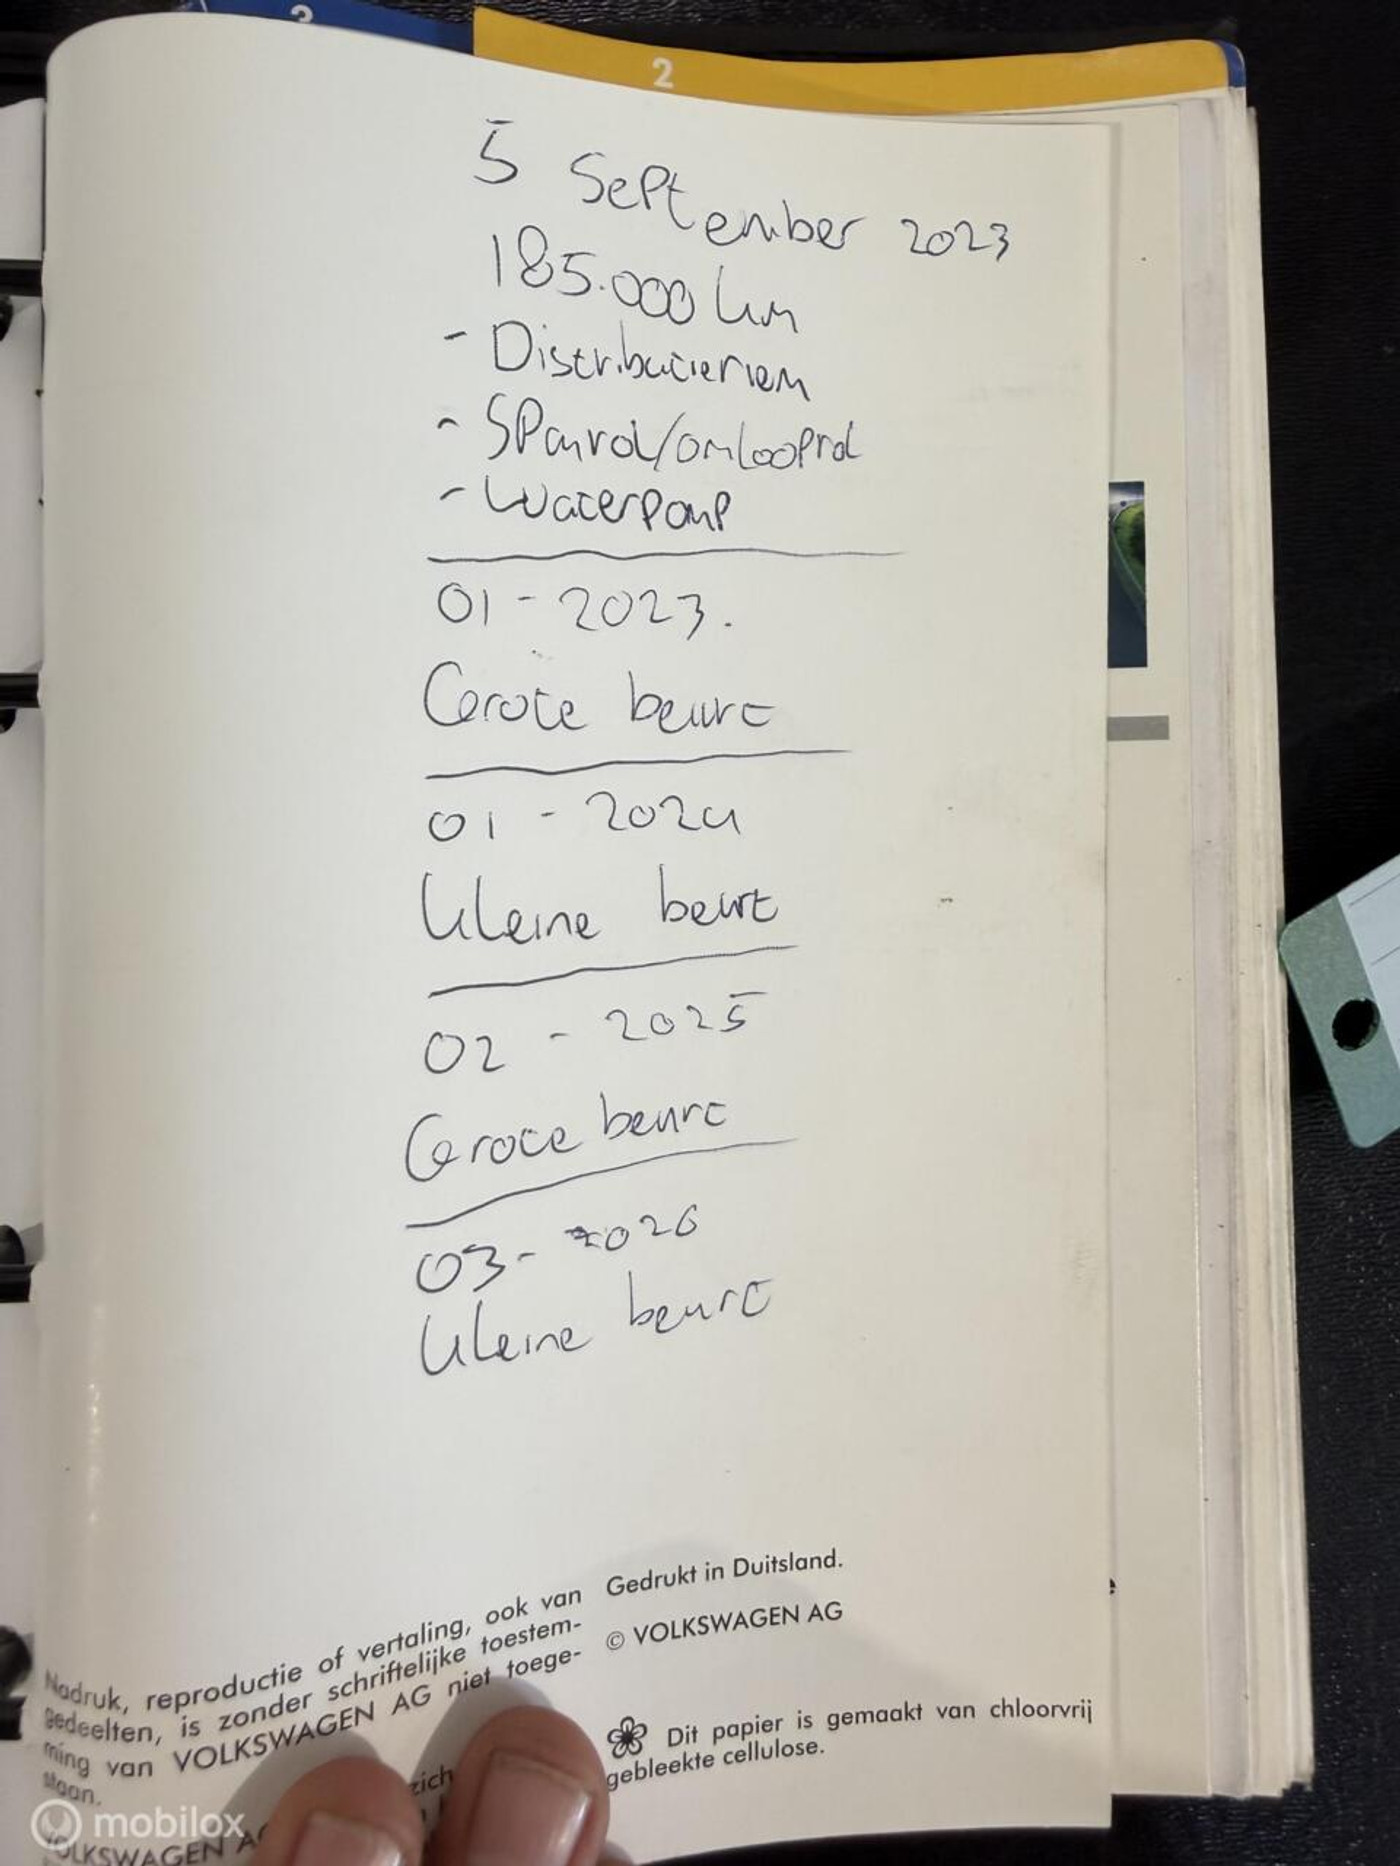 3
2
5 September 2023
185.000 km
- Distributieriem
- SPanrol/omlooprol
- Waterpomp
01 - 2023.
Grote beurt
01 - 2024
Kleine beurt
02 - 2025
Grote beurt
03 - 2026
Kleine beurt
Nadruk, reproductie of vertaling, ook van
gedeelten, is zonder schriftelijke toestem-
ming van VOLKSWAGEN AG niet toege-
staan.
zich
VOLKSWAGEN AG
Gedrukt in Duitsland.
© VOLKSWAGEN AG
Dit papier is gemaakt van chloorvrij
gebleekte cellulose.
mobilox